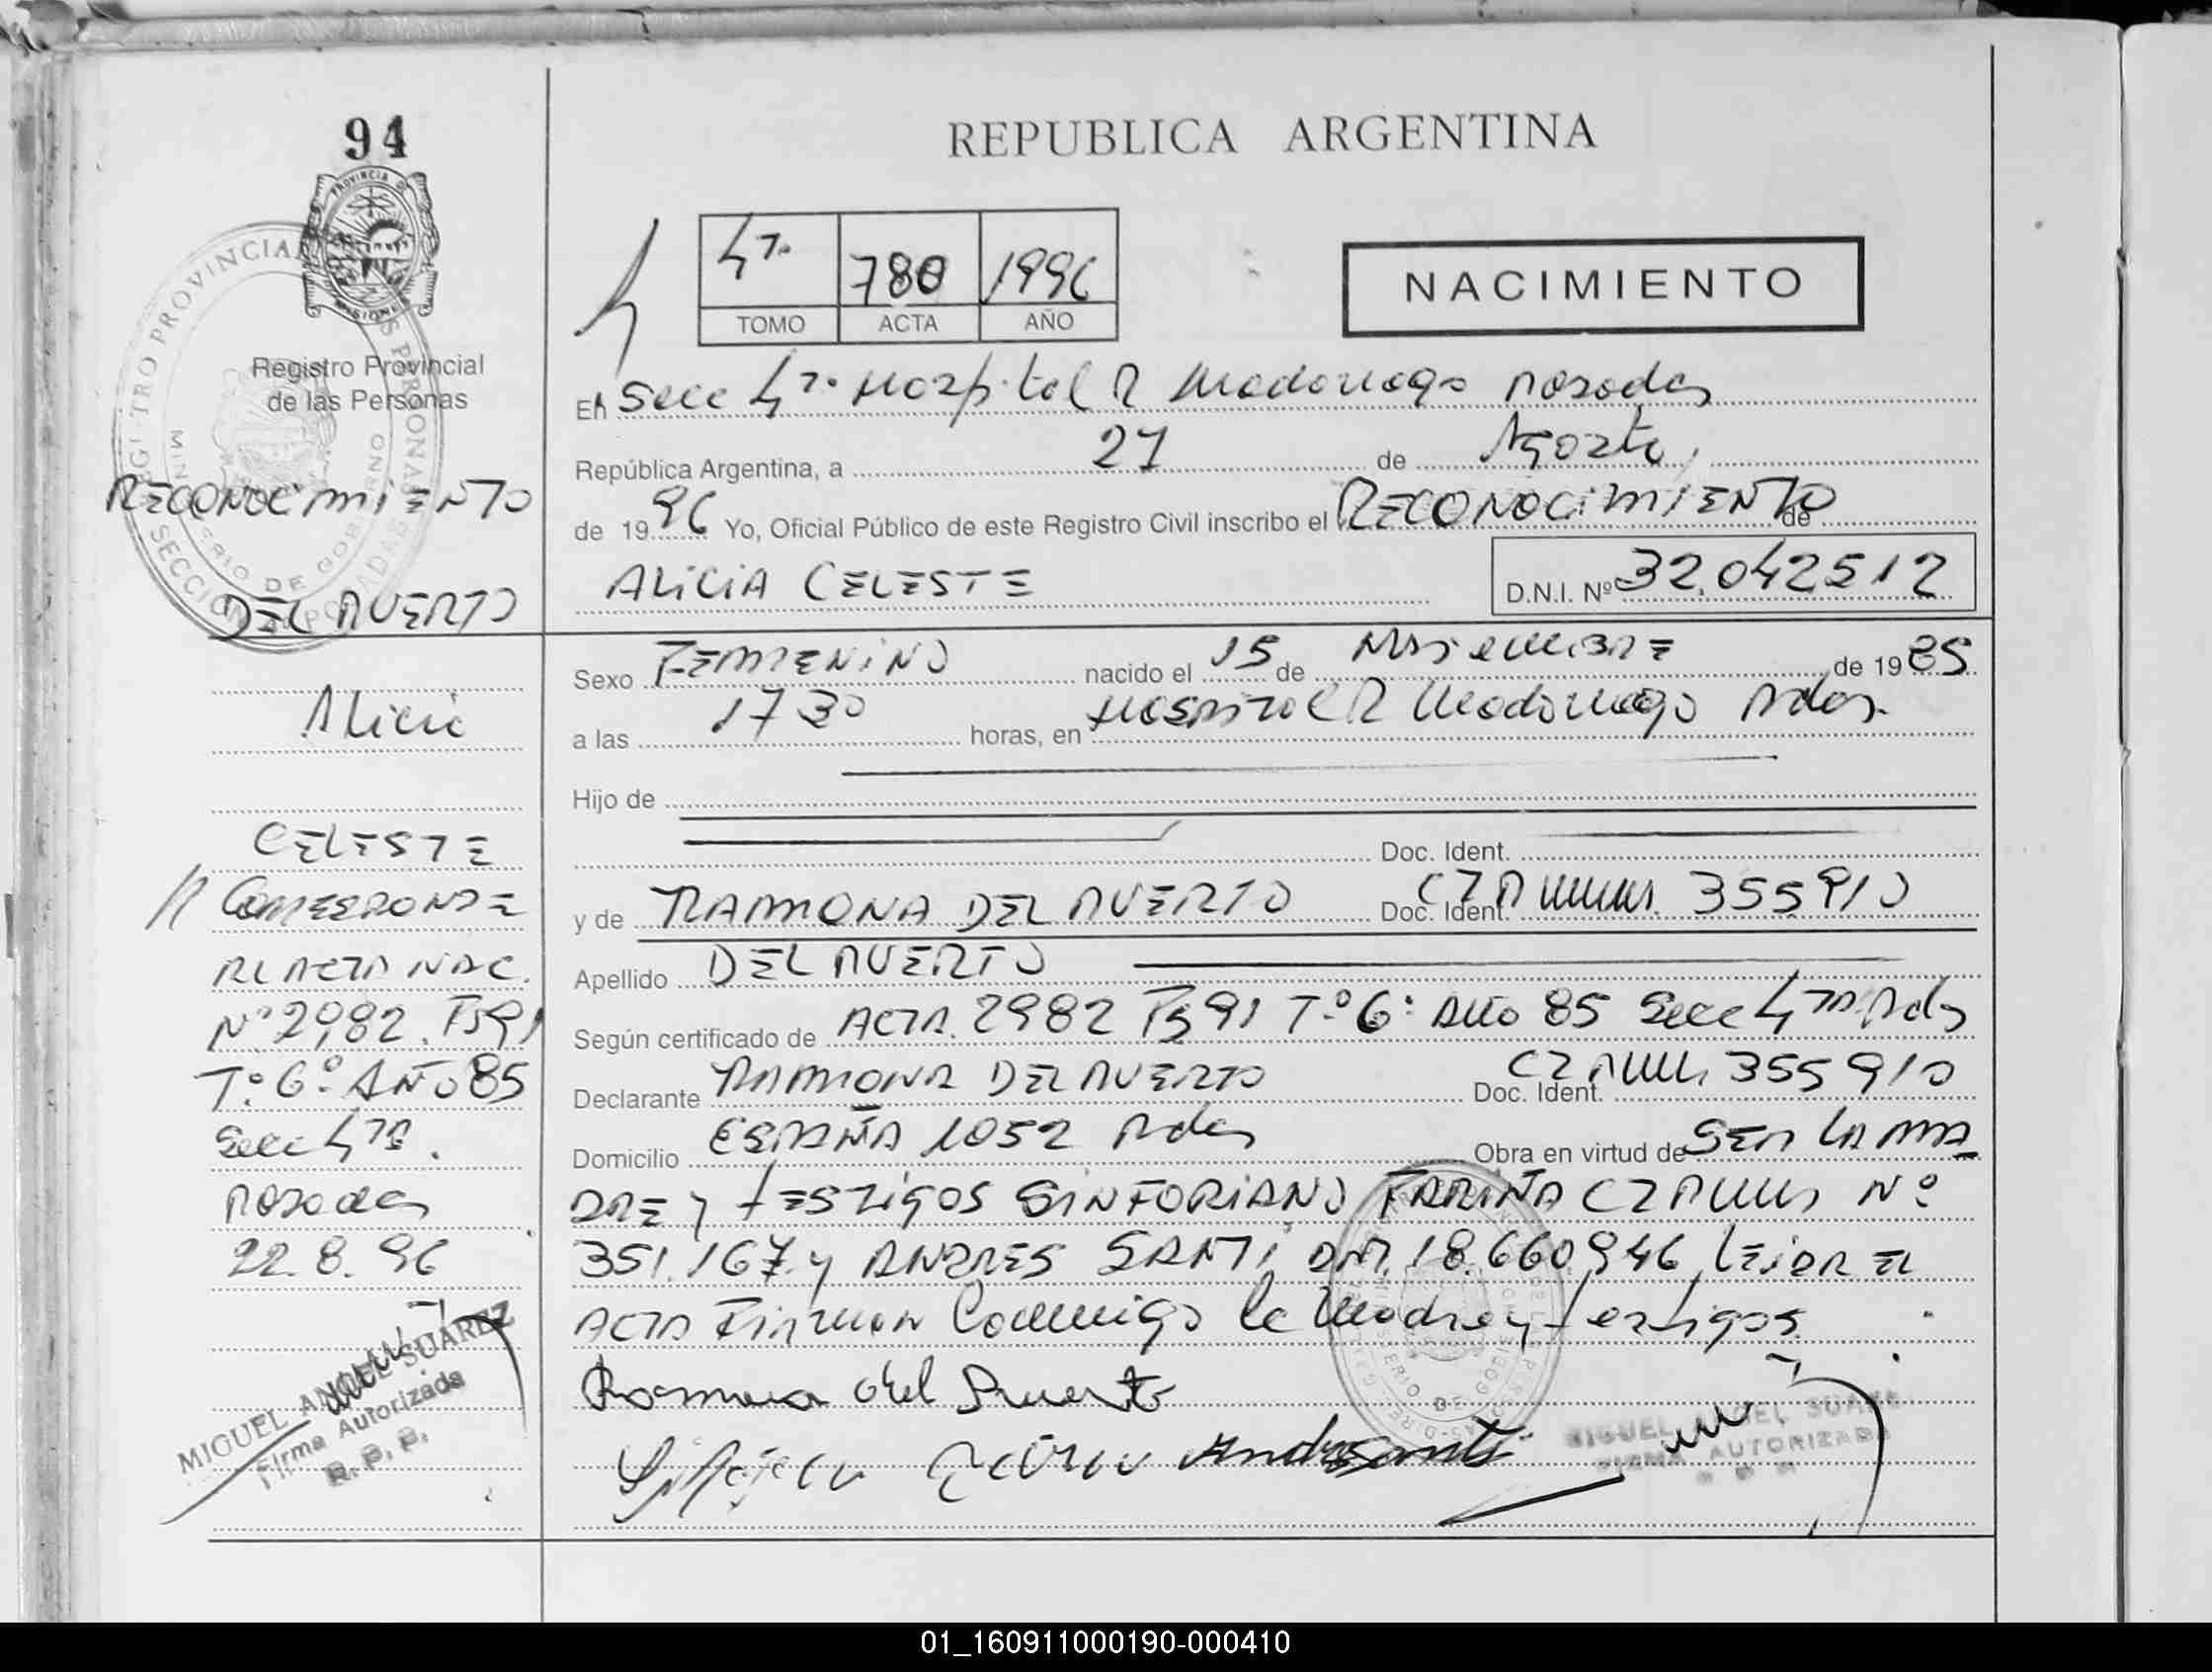 94
REPUBLICA ARGENTINA
PROVINCIA DE MISIONES
4ª 780 1996
TOMO ACTA AÑO
NACIMIENTO
Registro Provincial
de las Personas
RECONOCIMIENTO
DEL PUERTO
Alicia
CELESTE
CORRESPONDE
AL ACTA NAC.
Nº 2982. Fº 91
Tº 6º AÑO 85
Secc 4ta.
Posadas
22.8.96
MIGUEL ANGEL SUAREZ
Firma Autorizada
R. P. P.
En Secc 4ta. Hospital R Madariaga Posadas
República Argentina, a 27 de Agosto,
de 1996 Yo, Oficial Público de este Registro Civil inscribo el RECONOCIMIENTO de
ALICIA CELESTE D.N.I. Nº 32.042512
Sexo FEMENINO nacido el 15 de de 1985
a las 1730 horas, en HOSPITAL R Madariaga Pdas.
Hijo de
Doc. Ident.
y de RAMONA DEL PUERTO Doc. Ident. CZ PMM. 355910
Apellido DEL PUERTO
Según certificado de ACTA. 2982 Fº 91 Tº 6º AÑO 85 Secc 4ta Pdas
Declarante RAMONA DEL PUERTO Doc. Ident. CZ PMM 355910
Domicilio ESPAÑA 1052 Pdas Obra en virtud de SER LA MA
DRE y TESTIGOS SINFORIANO FARIÑA CZ PMM Nº
351.167 y ANDRES SANTI DNI. 18.660946 LEIDA EL
ACTA FIRMAN Conmigo la Madre y testigos.
Ramona del Puerto
MIGUEL ANGEL SUAREZ
FIRMA AUTORIZADA
01_160911000190-000410